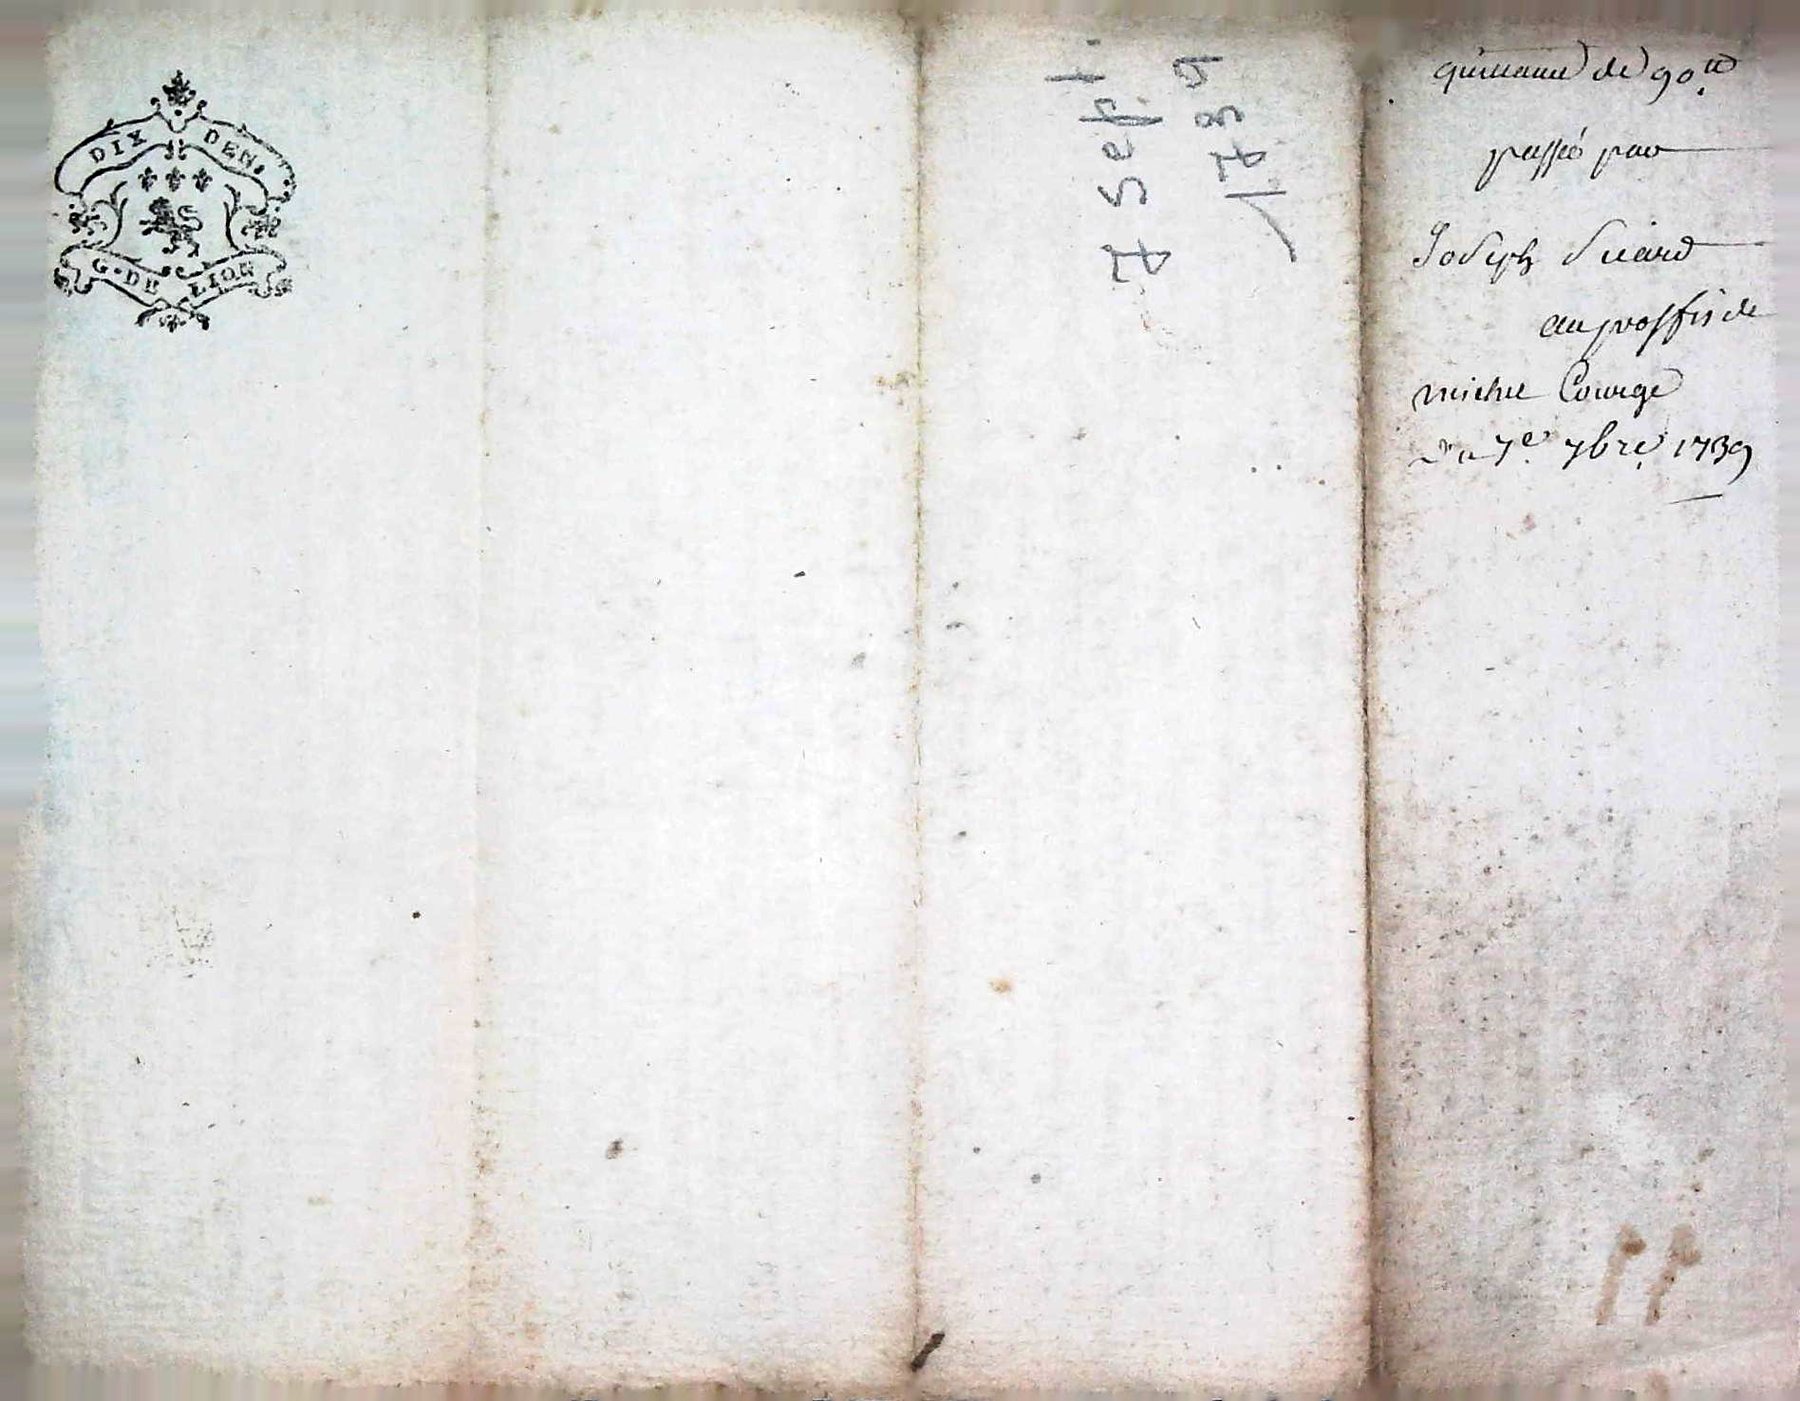 DIX DEN.
G. DE LION
7 sept.
1739
quittance de 90 tt
passée par
Joseph Sicard
au proffis de
michel Courge
du 7e. 7bre. 1739